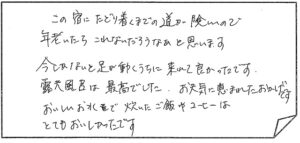 この宿にたどり着くまでの道が険しいので
年老いたらこれないだろうなあと思います
今しかないと足が動くうちに来れて良かったです。
露天風呂は最高でした。お天気に恵まれたおかげです
おいしいお水で炊いたご飯やコーヒーは
とてもおいしかったです